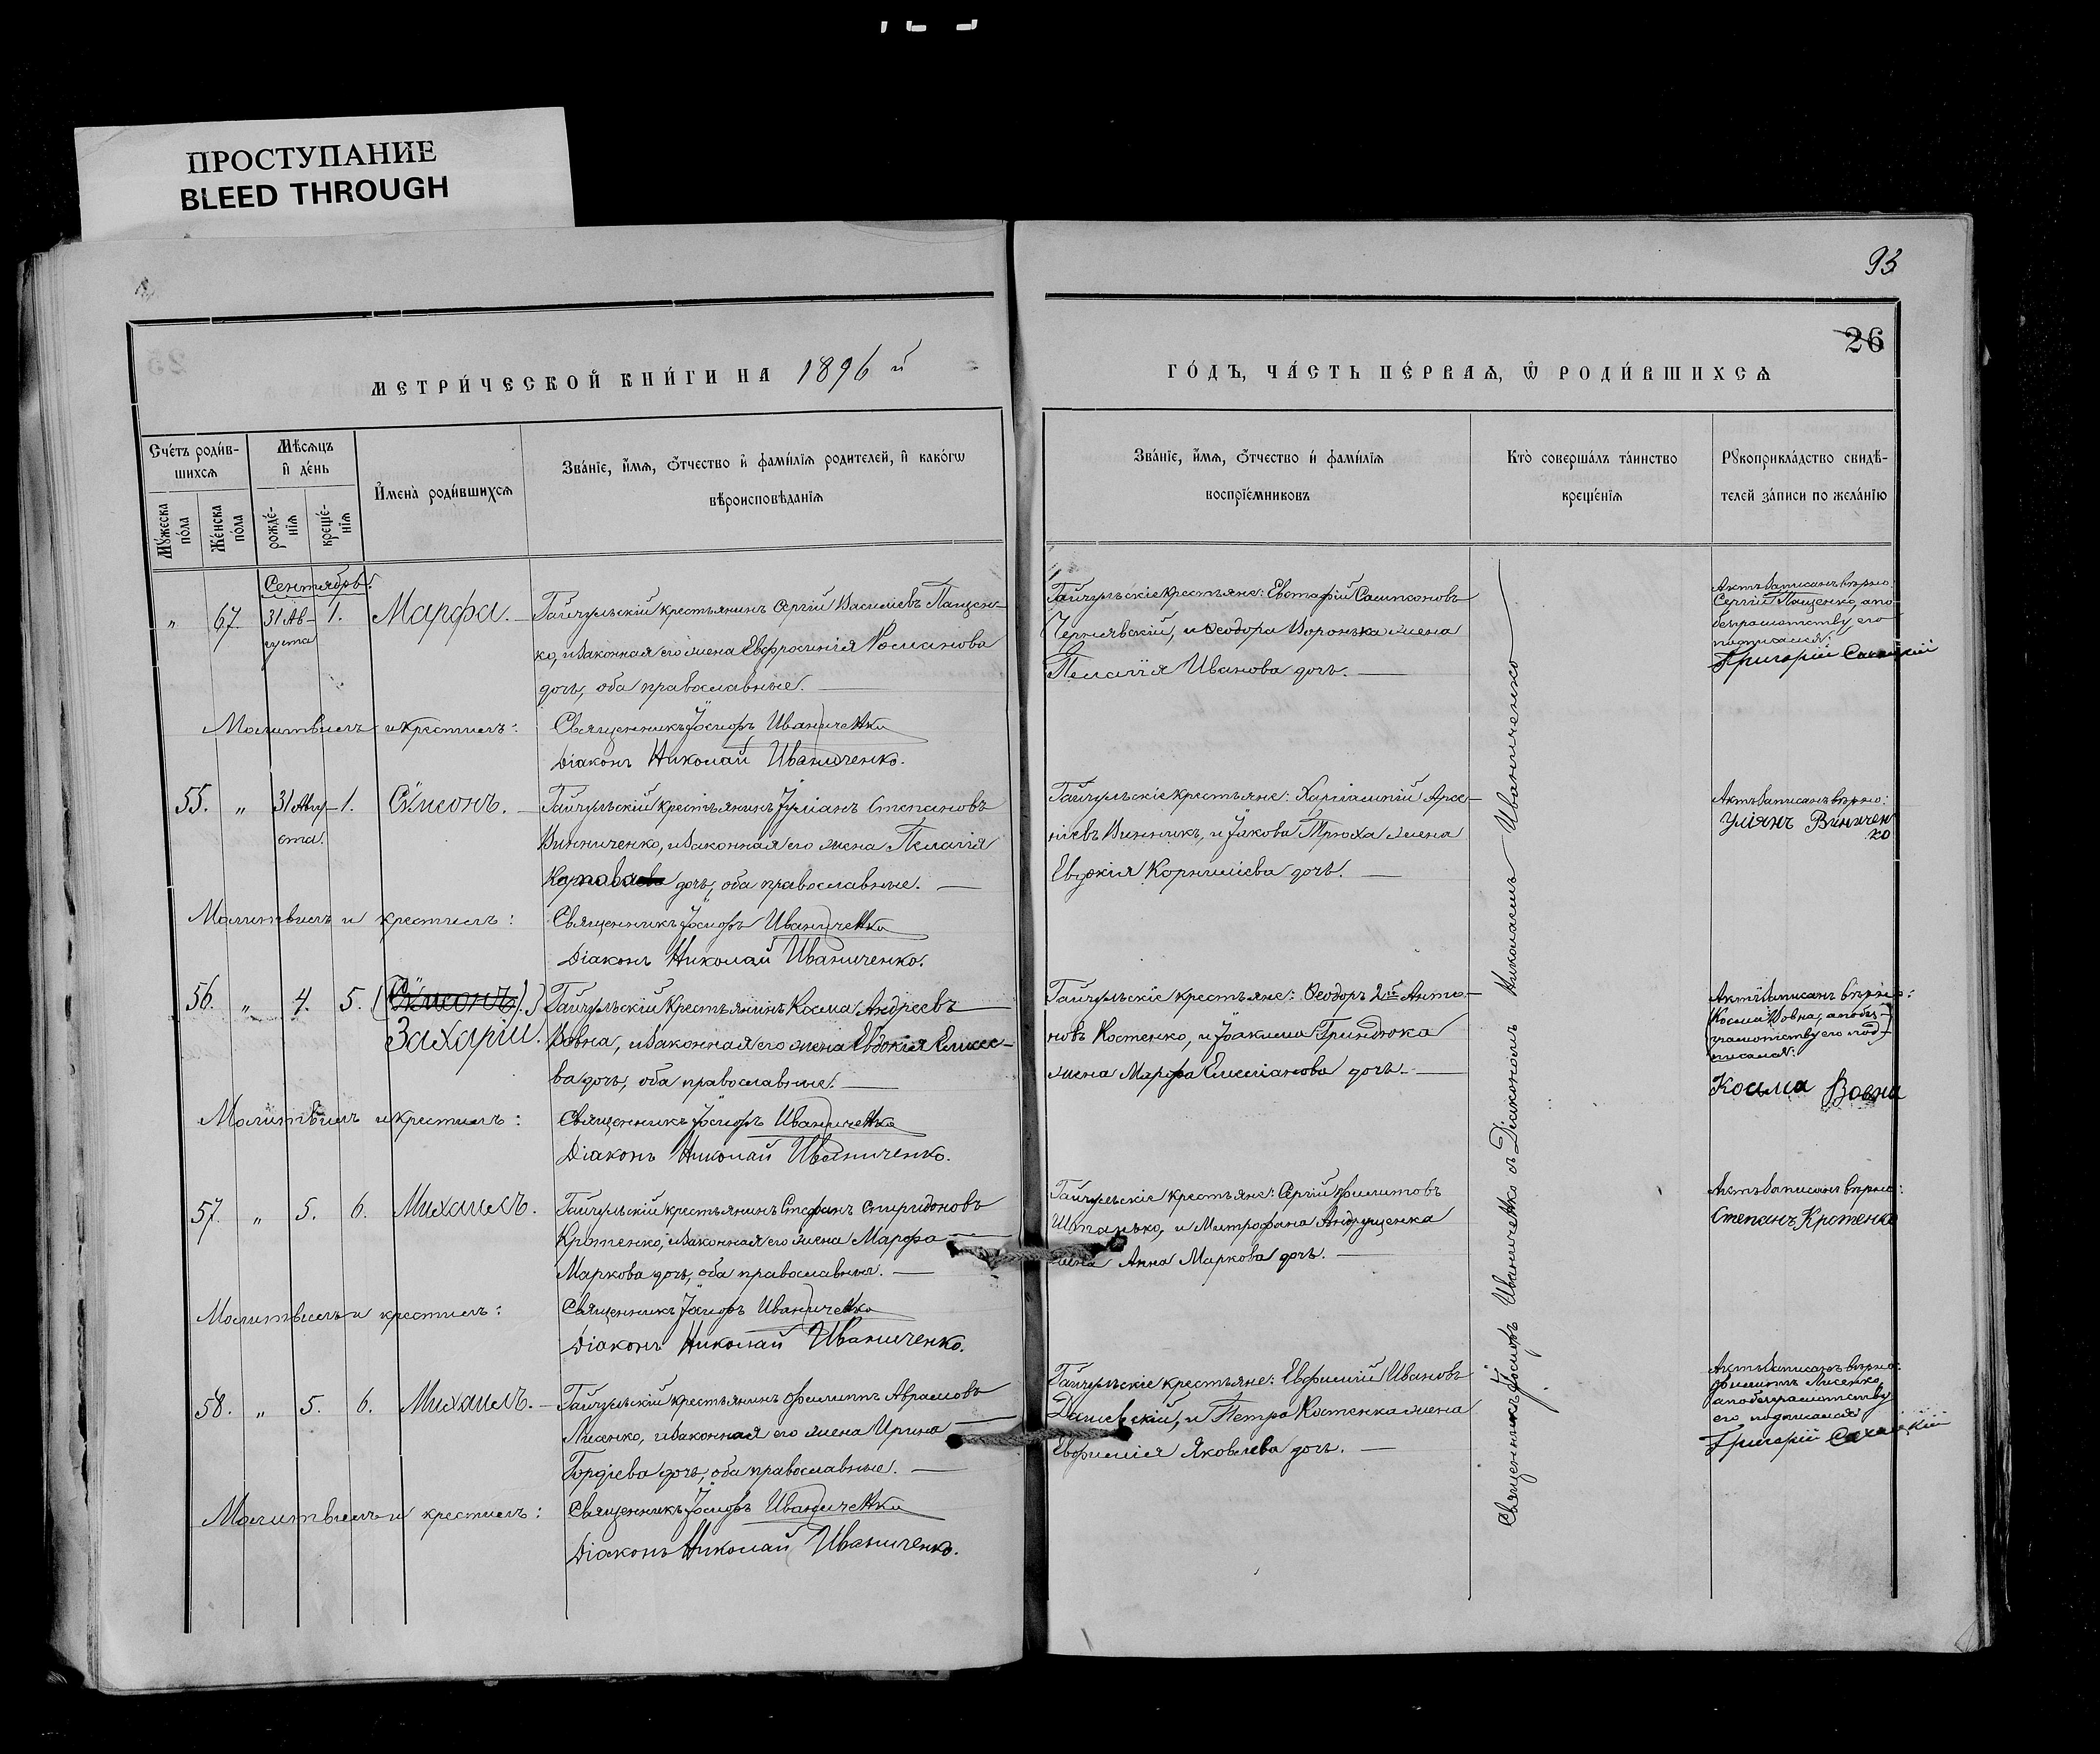 ПРОСТУПАНИЕ
BLEED THROUGH
93
26
МЕТРИ́ЧЕСКОЙ КНИ́ГИ НА 1896 й
ГО́ДЪ, ЧА́СТЬ ПЕ́РВАѦ, Ѡ РОДИ́ВШИХСѦ
Сче́тъ роди́в-
шихсѧ
Му́жеска по́ла
Же́нска по́ла
Мѣ́сѧцъ
и҆ де́нь
рожде́-нїѧ
креще́-нїѧ
И҆мена̀ роди́вшихсѧ
Зва́нїе, и҆́мѧ, ѻ҆́тчество и҆ фами́лїѧ родителей, и҆ како́гѡ
вѣроисповѣ́данїѧ
Зва́нїе, и҆́мѧ, ѻ҆́тчество и҆ фами́лїѧ
воспрїе́мниковъ
Кто̀ соверша́лъ та́инство
креще́нїѧ
Рꙋкоприкла́дство свидѣ́-
телей за́писи по жела́нїю
Сентябрь.
" 67. 31 Ав- 1. Марфа.
густа
Гайчульскій крестьянинъ Сергій Василіевъ Пащен-
ко, и законная его жена Евфросинія Романова
дочь, оба православные.
Молитвилъ и крестилъ: Священникъ Іосифъ Иваниченко
Діаконъ Николай Иваниченко.
Гайчульскіе крестьяне: Евстафій Сампсоновъ
Чернявскій, и Ѳеодора Воронька жена
Пелагія Иванова дочь.
Актъ записанъ вѣрно:
Сергій Пащенко, а по
безграмотству его
подписался:
Григорій
55. " 31 Авгу- 1. Сѵмеонъ.
ста.
Гайчульскій крестьянинъ Іуліанъ Степановъ
Винниченко, и законная его жена Пелагія
Карпова дочь, оба православные.
Молитвилъ и крестилъ: Священникъ Іосифъ Иваниченко
Діаконъ Николай Иваниченко.
Гайчульскіе крестьяне: Харлампій Арсе-
ніевъ Винникъ, и Іакова Трюха жена
Евдокія Корниліева дочь.
Актъ записанъ вѣрно:
Уліянъ Виничен
ко
56. " 4. 5. (Сѵмеонъ.)
Захарій.
Гайчульскій крестьянинъ Косма Андреевъ
Вовна, и законная его жена Евдокія Елисее-
ва дочь, оба православные.
Молитвилъ и крестилъ: Священникъ Іосифъ Иваниченко
Діаконъ Николай Иваниченко.
Гайчульскіе крестьяне: Ѳеодоръ 2й Анто-
новъ Костенко, и Іоакима Гриндюка
жена Марфа Емеліанова дочь.
Актъ записанъ вѣрно:
(Косма Вовна, а по без-
грамотству его под-
писался:
Косма Вовна
57. " 5. 6. Михаилъ.
Гайчульскій крестьянинъ Стефанъ Спиридоновъ
Кротенко, и законная его жена Марфа
Маркова дочь, оба православные.
Молитвилъ и крестилъ: Священникъ Іосифъ Иваниченко
Діаконъ Николай Иваниченко.
Гайчульскіе крестьяне: Сергій Филиповъ
Штанько, и Митрофана Андрущенка
жена Анна Маркова дочь.
Актъ записанъ вѣрно:
Степанъ Кротенко
58. " 5. 6. Михаилъ.
Гайчульскій крестьянинъ Филиппъ Аврамовъ
Лисенко, и законная его жена Ирина
Гордіева дочь, оба православные.
Молитвилъ и крестилъ: Священникъ Іосифъ Иваниченко
Діаконъ Николай Иваниченко.
Гайчульскіе крестьяне: Евфимій Ивановъ
Данилевскій, и Петра Костенка жена
Евфимія Яковлева дочь.
Актъ записанъ вѣрно:
Филиппъ Лисенко,
а по безграмотству
его подписался
Григорій
Священникъ Іосифъ Иваниченко съ Діакономъ Николаемъ Иваниченко